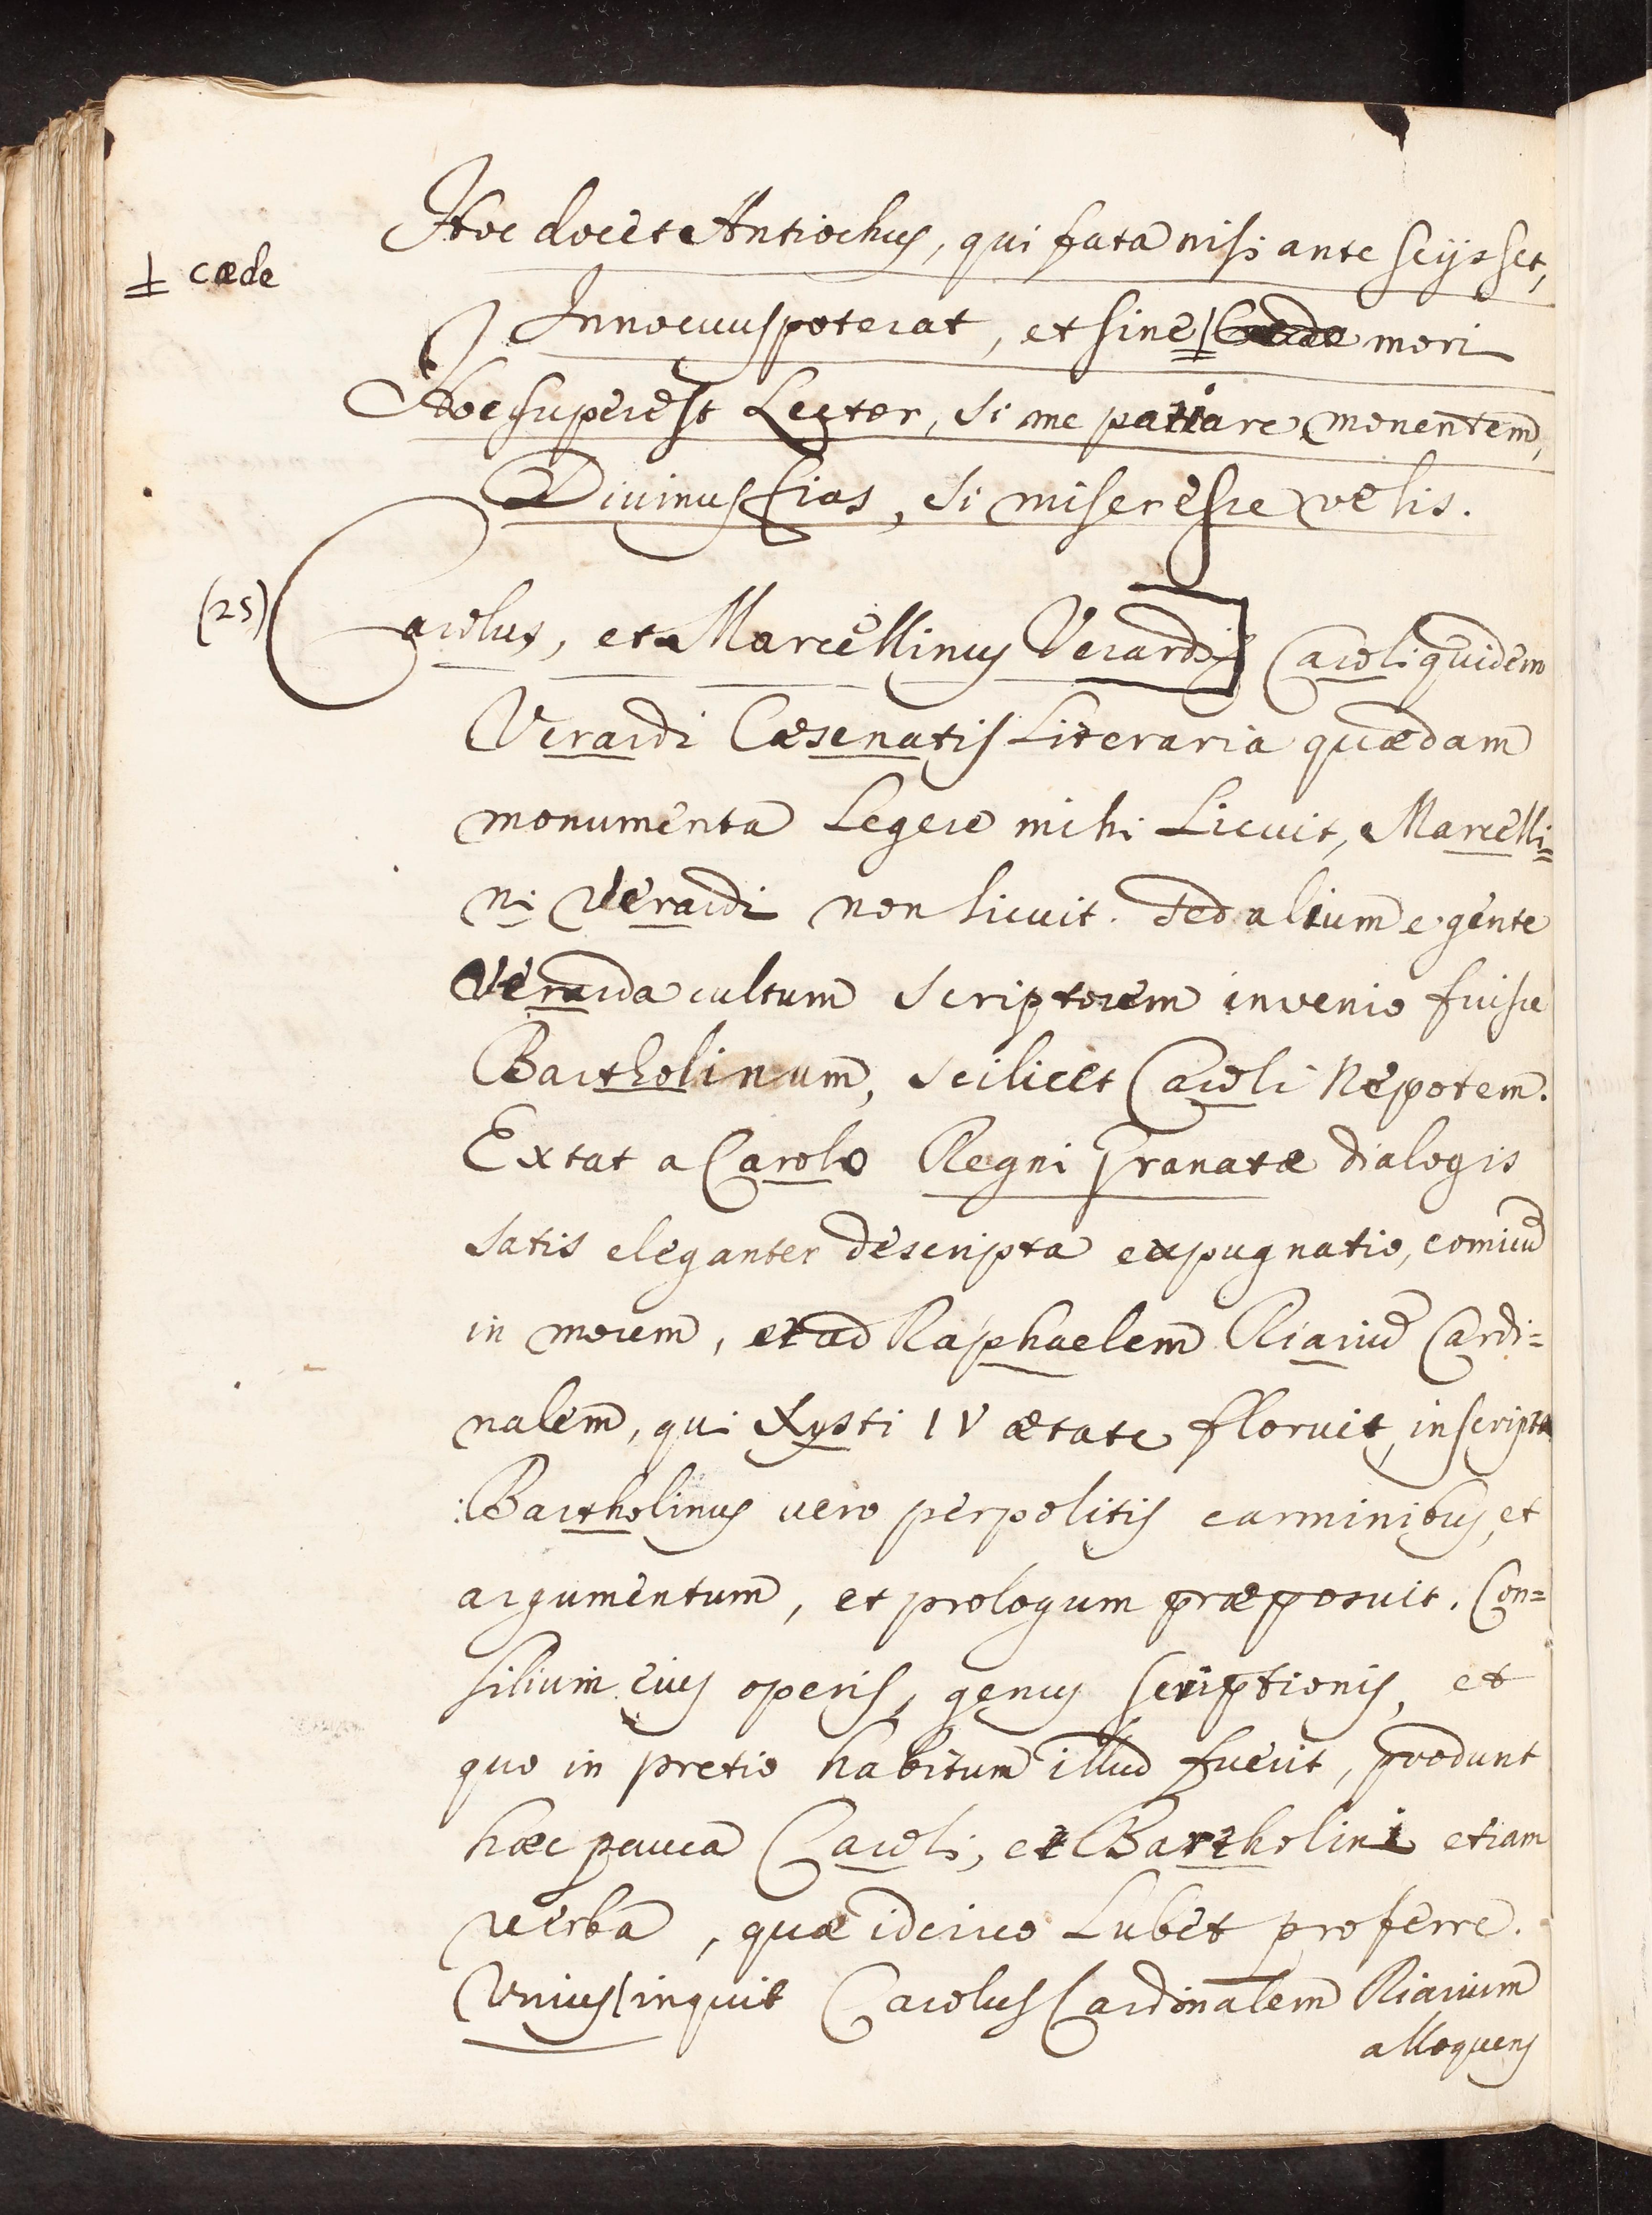 Hoc docet Antiochus, qui fata nisi ante scijsset,
⊥ cæde
Innocuus poterat, et sine mori
Hoc superest Lector, si me patiare monentem,
Diuinus fias, si miseresse velis.
(25) Carolus, et Marcellinus Verardi] Caroli quidem
Verardi Cæsenatis Literaria quædam
monumenta Legere mihi Licuit, Marcelli=
ni Verardi non licuit. Sed alium e gente
Verarda cultum scriptorem invenio fuisse
Bartholinum, scilicet Caroli Nepotem.
Extat a Carolo Regni Granatæ dialogis
satis eleganter descripta expugnatio, comicũ
in morem, et ad Raphaelem Riariũ Cardi=
nalem, qui Xysti IV ætate floruit, inscripta
:Bartholinus vero perpolitis carminibus, et
argumentum, et prologum præposuit. Con=
silium eius operis, genus scriptionis, et
quo in pretio habitum illud fuerit, produnt
hæc pauca Caroli, et Bartholini etiam
verba, quæ idcirco Lubet proferre.
Vnius (inquit Carolus Cardinalem Riarium
alloquens